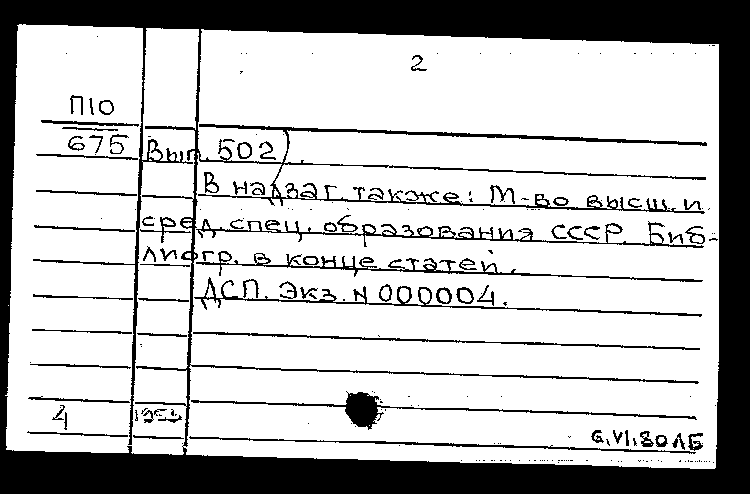 2
П10
675 Вып. 502).
В надзаг. также: М-во высш. и
сред. спец. образования СССР. Биб-
лиогр. в конце статей.
ДСП. Экз. N 000004.
4
6.VI.80 ЛБ